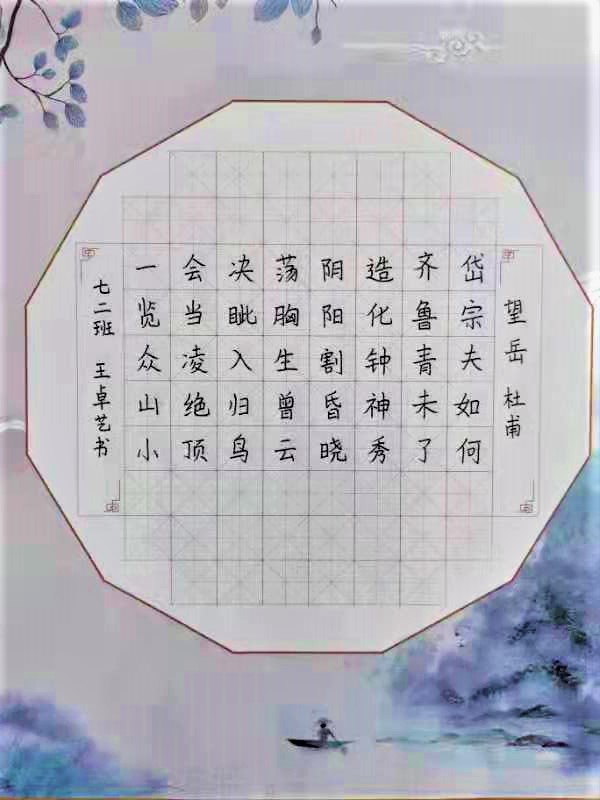 望岳 杜甫
岱宗夫如何
齐鲁青未了
造化钟神秀
阴阳割昏晓
荡胸生曾云
决眦入归鸟
会当凌绝顶
一览众山小
七二班 王卓艺书